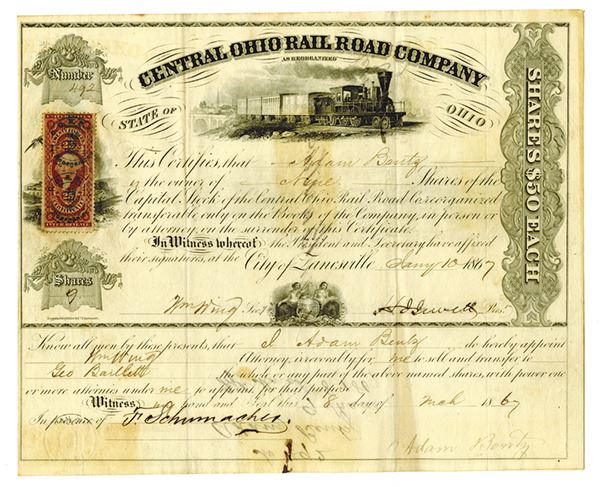 CENTRAL OHIO RAIL ROAD COMPANY
AS REORGANIZED
Number
492
STATE OF OHIO
SHARES $50 EACH
This Certifies, that Adam Bentz
is the owner of Nine Shares of the
Capital Stock of the Central Ohio Rail Road Co. as reorganized
transferable only on the Books of the Company, in person or
by attorney, on the surrender of this Certificate.
In Witness whereof the President and Secretary have affixed
their signatures, at the City of Zanesville Jany 10 1867
25 25
INTER. REVENUE
Shares
9
Wm Wing Secy
Pres.
Know all men by these presents, that I Adam Bentz do hereby appoint
Wm Wing Attorney, irrevocably for me to sell and transfer to
Geo Bartlett the whole or any part of the above named shares, with power one
or more attornies under me to appoint for that purpose
Witness my hand and seal this 8 day of Mch 1867
In presence of F. Schumacher
Adam Bentz